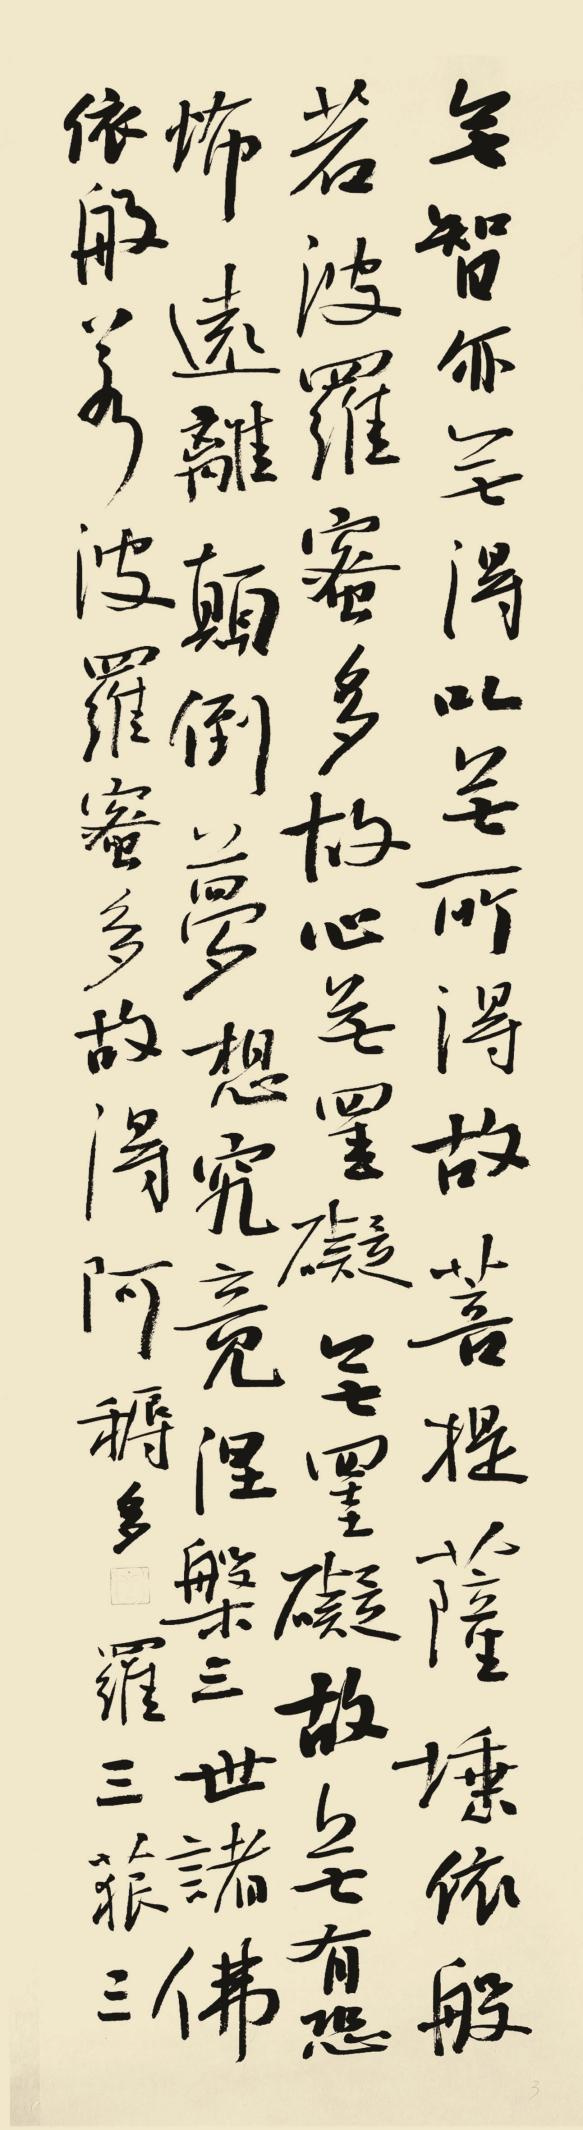 无智亦无得以无所得故菩提薩埵依般
若波羅蜜多故心无罣礙无罣礙故无有恐
怖遠離顛倒夢想究竟涅槃三世諸佛
依般若波羅蜜多故得阿耨多羅三藐三
3